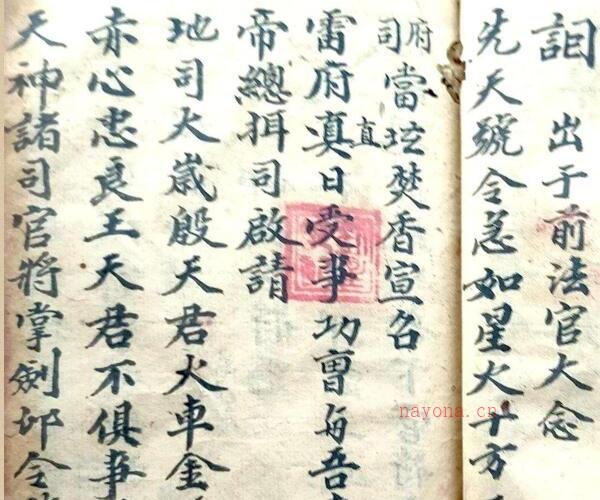 詛 出于前法官大念
先天號令急如星火十方
府司 當坛焚香宣名
雷府真日直受事功曹与吾
帝總押司啟請
地司大歲殷天君火車金
赤心忠良王天君不俱事
天神諸司官将掌劍印令
nayona.cn